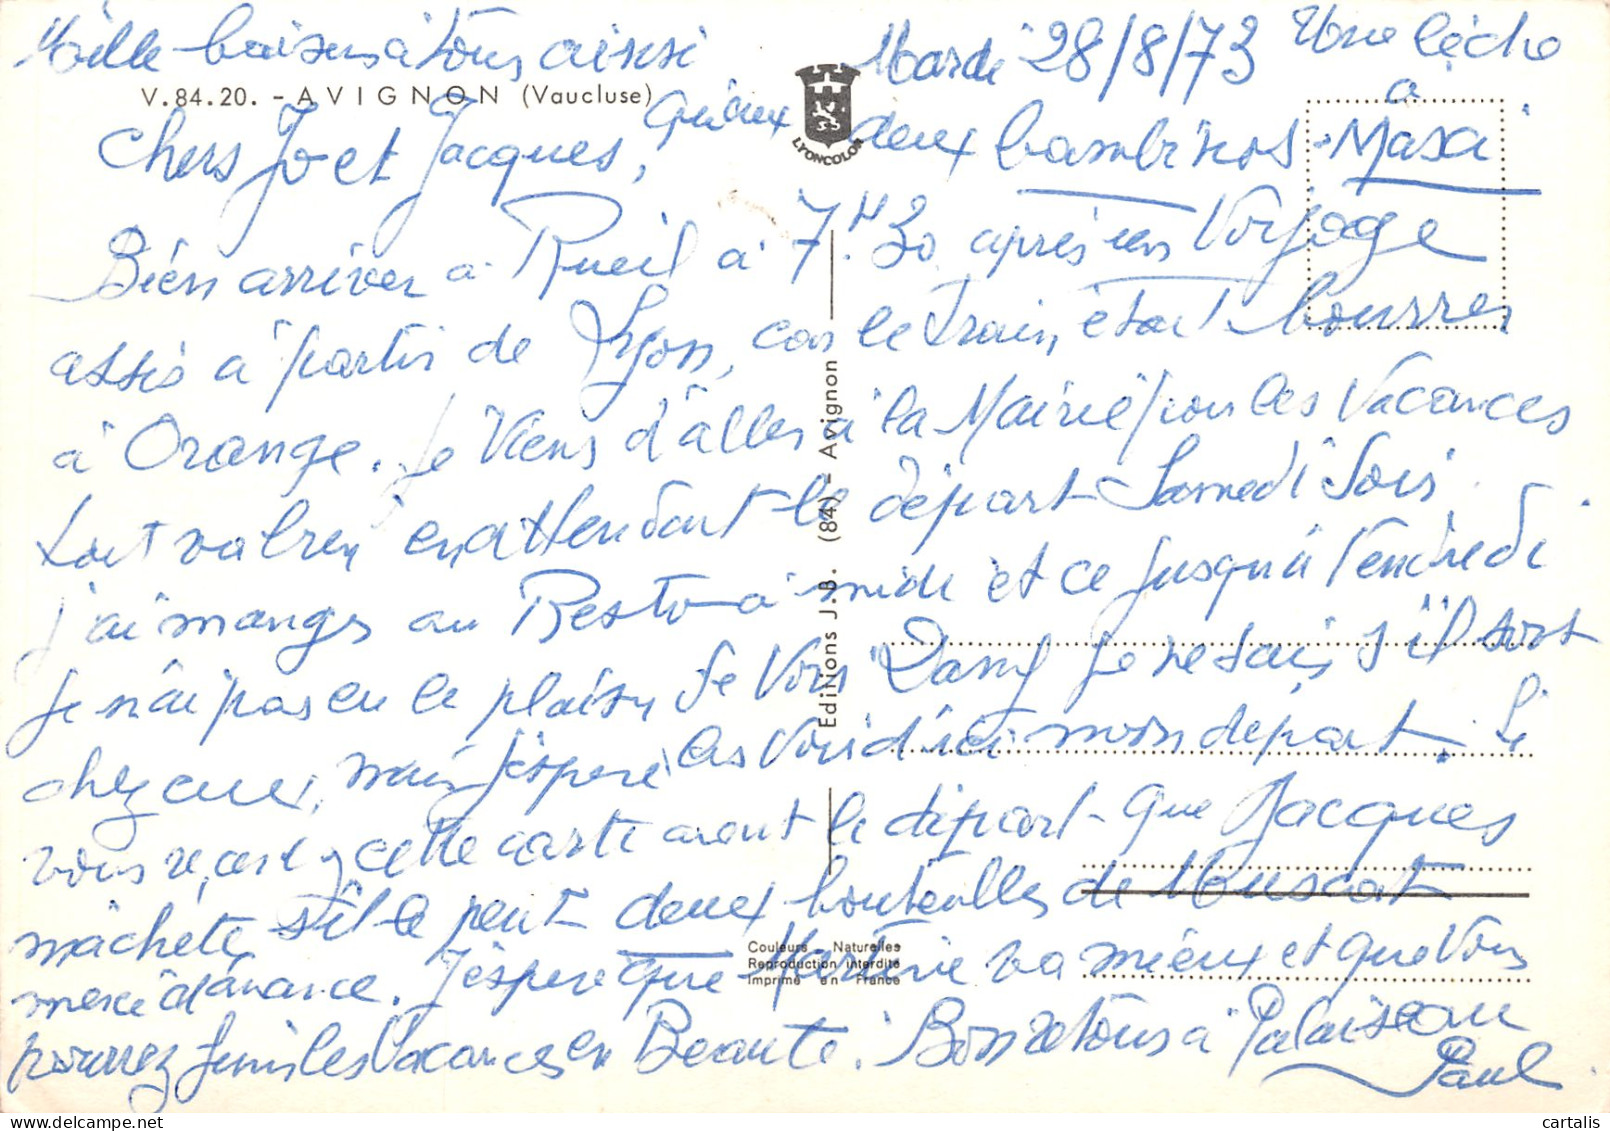 Mille baisers à tous aissi
Mardi 28/8/73
Une lèche
à
V.84.20. - AVIGNON (Vaucluse)
qu'aux deux bambinos - Maxa
LYONCOLOR
Chers Jo et Jacques,
Bien arriver à Rueil à 7H.30 après un Voyage
assis à partir de Lyon, car le Train était bourrer
à Orange. Je Viens d'aller à la Mairie pour les Vacances
tout va bien en attendant le départ Samedi Soir.
j'ai manger au Resto à midi et ce jusqu'à Vendredi
je n'ai pas eu le plaisir de Voir Dany je ne sais s'il sont
chez eux, mais j'espère les Voir d'ici mon départ. Si
vous recevez cette carte avant le départ - que Jacques
m'achète, s'il le peut deux bouteilles de Muscat
merci d'avance. J'espère que Martine va mieux et que Vous
pourrez finir les Vacances en Beauté. Bon retour à Palaiseau
Paul
Editions J.B. (84) - Avignon
Couleurs Naturelles
Reproduction interdite
Imprimé en France
cartalis